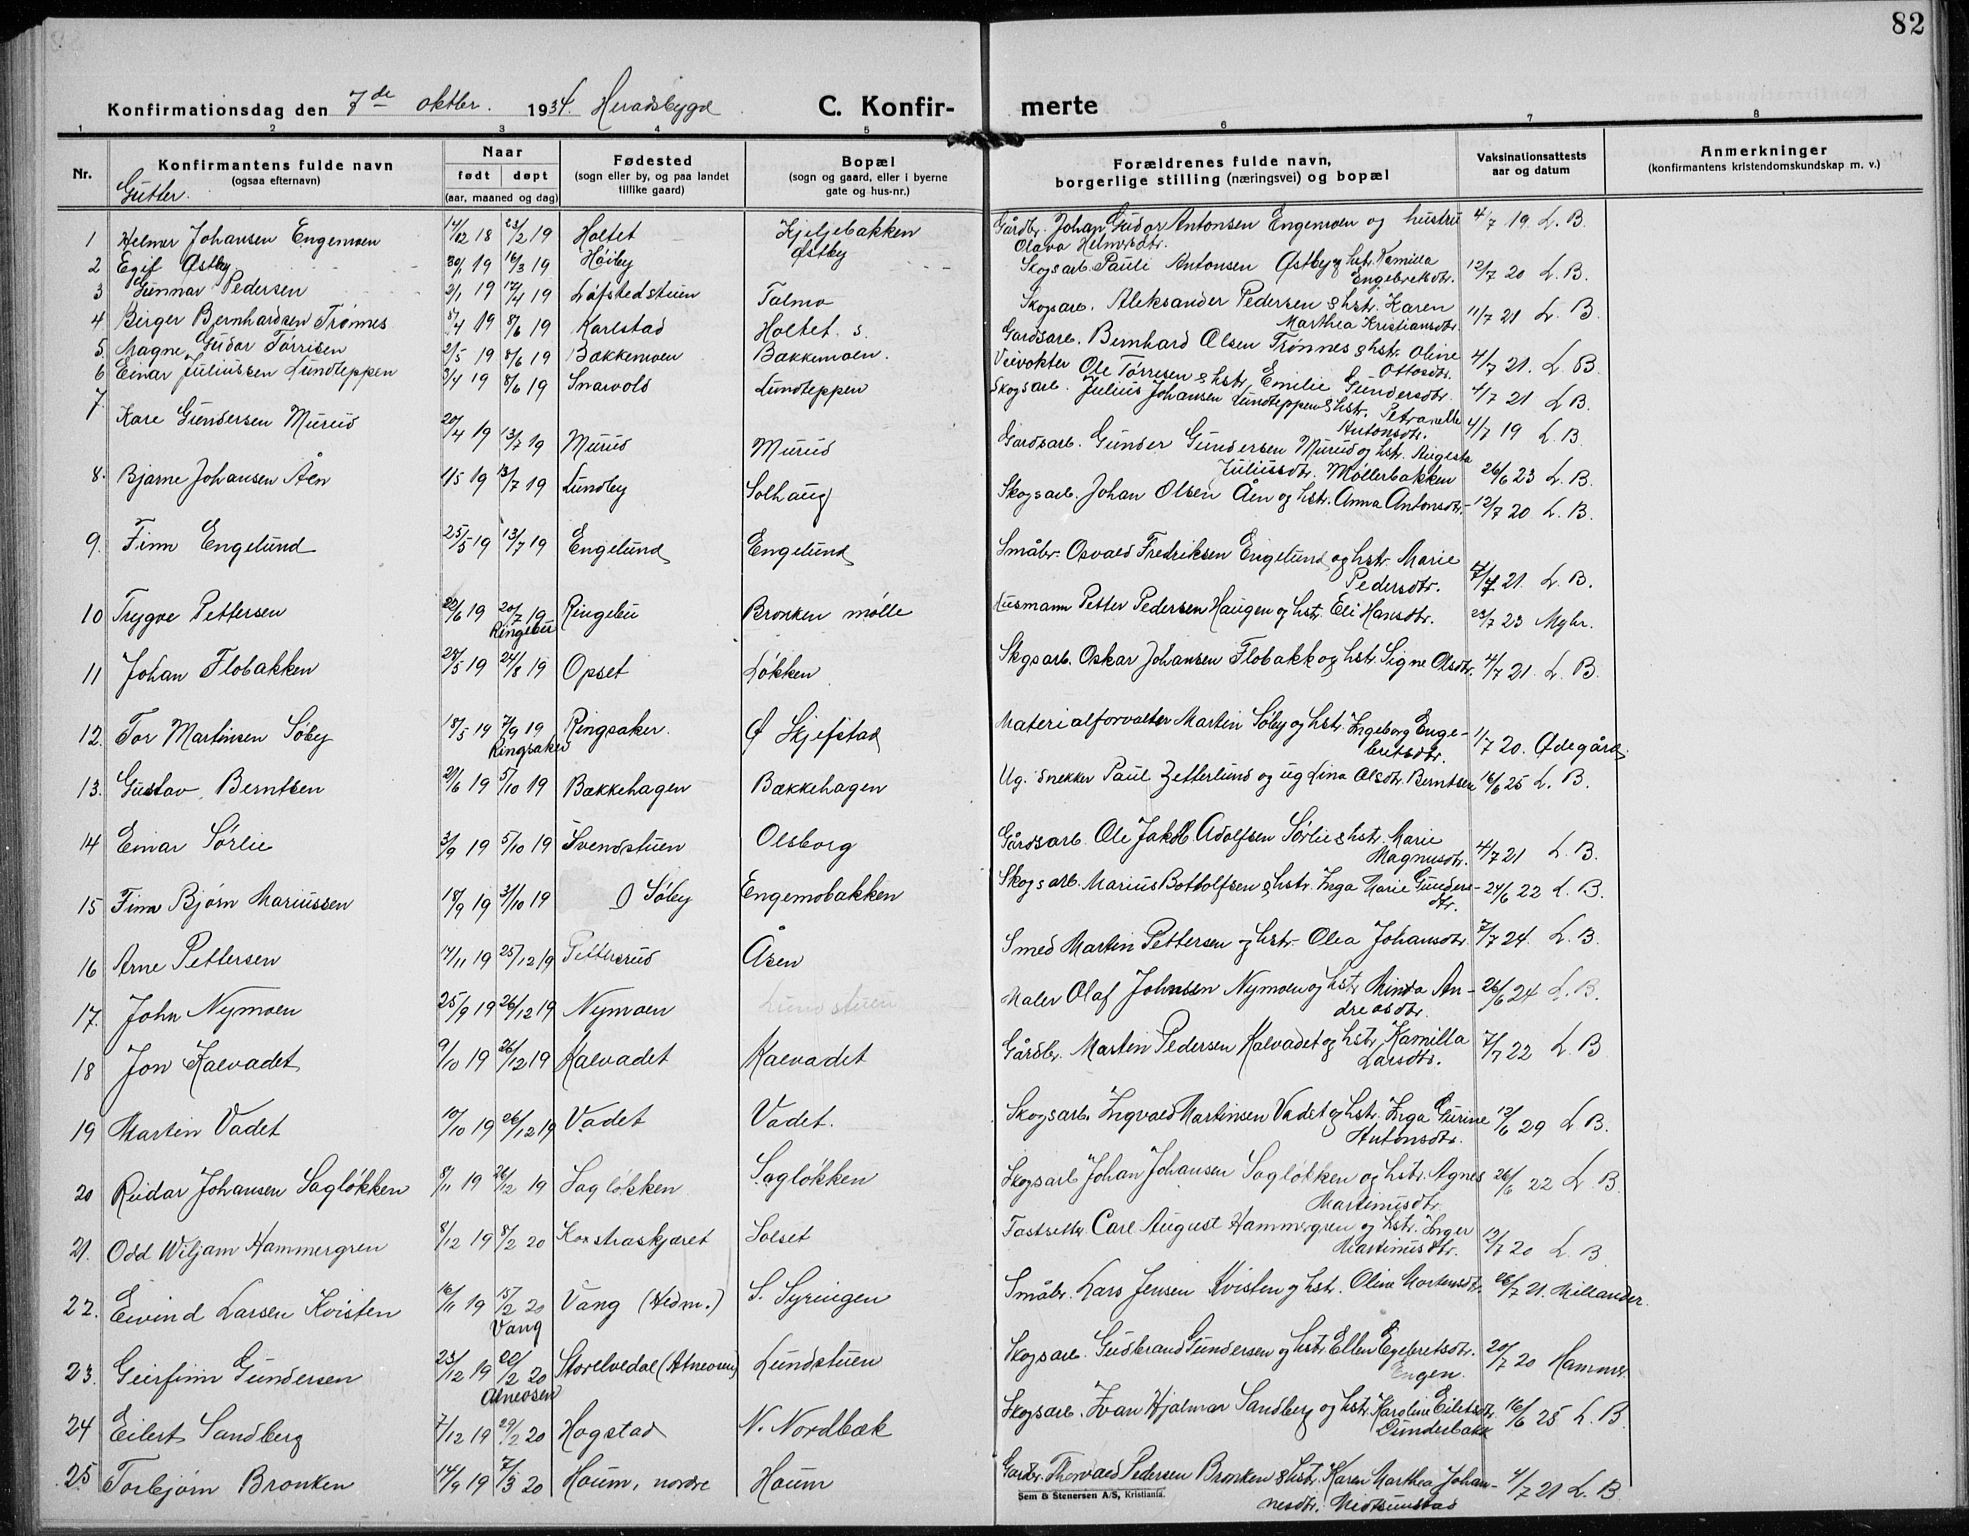 82
Konfirmationsdag den 7de oktbr. 1934. Heradsbygd C. Konfir- merte
1 2 3 4 5 6 7 8
Nr. Konfirmantens fulde navn (ogsaa efternavn) Naar født døpt (aar, maaned og dag) Fødested (sogn eller by, og paa landet tillike gaard) Bopæl (sogn og gaard, eller i byerne gate og hus-nr.) Forældrenes fulde navn, borgerlige stilling (næringsvei) og bopæl Vaksinationsattests aar og datum Anmerkninger (konfirmantens kristendomskundskap m. v.)
Gutter.
1 Helmer Johansen Engemoen 14/12 18 23/2 19 Holtet Kjeljebakken Gårdbr. Johan Gudor Antonsen Engemoen og hustru Olava Helmersdtr. 4/7 19 L. B.
2 Egif Østby 30/1 19 16/3 19 Høiby Østby Skogsarb. Pauli Antonsen Østby og hstr. Kamilla Engebretsdtr. 12/7 20 L. B.
3 Gunnar Pedersen 2/1 19 17/4 19 Løfstedstuen Talmo Skogsarb. Aleksander Pedersen & hstr. Karen Marthea Kristiansdtr. 11/7 21 L. B.
4 Birger Bernhardsen Trønnes 8/4 19 8/6 19 Karlstad Holtet s. Gardsarb. Bernhard Olsen Trønnes & hstr. Oline Ottosdtr. 4/7 21. L. B.
5. Magne Gudor Tørrisen 2/5 19 8/6 19 Bakkemoen Bakkemoen. Veivokter Ole Tørresen & hstr. Emilie Gundersdtr. 4/7 21 L. B.
6 Einar Juliussen Lundteppen 3/4 19 8/6 19 Snarvold Lundteppen Skogsarb. Julius Johansen Lundteppen & hstr. Petronelle Antonsdtr. 4/7 19 L. B.
7. Kare Gundersen Murud 20/4 19 13/7 19 Murud Murud Gardsarb. Gunder Gundersen Murud og hstr. Augusta Juliusdtr. Møllerbakken 26/6 23 L. B.
8. Bjarne Johansen Åen 1/5 19 13/7 19 Lundby Solhaug Skogsarb. Johan Olsen Åen og hstr. Anna Antonsdtr. 12/7 20 L. B.
9. Finn Engelund 25/5 19 13/7 19 Engelund Engelund Småbr. Osvald Fredriksen Engelund og hstr. Marie Pedersdtr. 4/7 21. L. B.
10 Trygve Pettersen 22/6 19 20/7 19 Ringebu Ringebu Bronken mølle Husmann Petter Pedersen Haugen og hstr. Eli Hansdtr. 23/7 23 Myhr.
11 Johan Flobakken 28/5 19 24/8 19 Opset Løkken Skogsarb. Oskar Johansen Flobakk og hstr. Signe Olsdtr. 4/7 21. L. B.
12. Tor Martinsen Søby 18/5 19 7/9 19 Ringsaker Ringsaker. Ø Skjefstad Materialforvalter Martin Søby og hstr. Ingeborg Engebretsdtr. 1/7 20. Ødegård
13. Gustav Berntsen 21/6 19 5/10 19 Bakkehagen Bakkehagen Ug. snekker Paul Zetterlund og ug Lina Olsdtr. Berntsen 16/6 25 L. B.
14 Einar Sørlie 3/9 19 5/10 19 Svendstuen Olsborg Gårdsarb. Ole Jakob Adolfsen Sørlie & hstr. Marie Magnusdtr. 4/7 21 L. B.
15 Finn Bjørn Mariussen 18/9 19 31/10 19 Ø Søby Engemobakken Skogsarb. Marius Bottolfsen & hstr. Inga Marie Gundersdtr. 24/6 22 L. B.
16 Arne Pettersen 17/11 19 25/12 19 Pettersrud Åsen Smed Martin Pettersen og hstr. Olea Johansdtr. 7/7 24. L. B.
17. John Nymoen 25/9 19 26/12 19 Nymoen Lundstuen Maler Olaf Johnsen Nymoen og hstr. Minda Andreasdtr. 26/6 24 L. B.
18 Jon Kalvadet 9/10 19 26/12 19 Kalvadet Kalvadet Gårdbr. Martin Pedersen Kalvadet og hstr. Kamilla Larsdtr. 7/7 22 L. B
19 Martin Vadet 10/10 19 26/12 19 Vadet Vadet. Skogsarb. Ingvald Martinsen Vadet og hstr. Inga Gurine Antonsdtr. 12/6 29 L B.
20 Reidar Johansen Sagløkken 8/11 19 26/12 19 Sagløkken Sagløkken Skogsarb Johan Johansen Sagløkken og hstr. Agnes Martinusdtr. 26/6 22 L. B.
21. Odd Wiljam Hammergren 8/12 19 8/2 20 Kostraskjæret Solset Carl August Hammergren og hstr. Inger Martinusdtr. 12/7 20 L. B
22. Eivind Larsen Kvisten 16/11 19 15/2 20 Vang Vang (Hedm.) S. Syringen Småbr. Lars Jensen Kvisten og hstr. Oline Mortensdtr. 26/7 21. Millander.
23. Geirfinn Gundersen 23/12 19 22/2 20 Atneosen Storelvedal (Atneosen) Lundstuen Skogsarb. Gudbrand Gundersen og hstr Ellen Egebretsdtr. Engen. 20/7 20 Hammer.
24 Eilert Sandberg 7/12 19 29/2 20 Hogstad N. Nordbæk Skogsarb. Ivan Hjalmar Sandberg og hstr. Karoline Eilertsdtr. Dunderbakk 16/6 25 L. B.
25 Torbjørn Bronken 14/9 19 7/3 20 Houm, nordre Houm Gardbr. Thorvald Pedersen Bronken & hstr. Karen Marthea Johannesdtr. Midtsundstad 4/7 21 L. B.
Sem & Stenersen A/S, Kristiania.